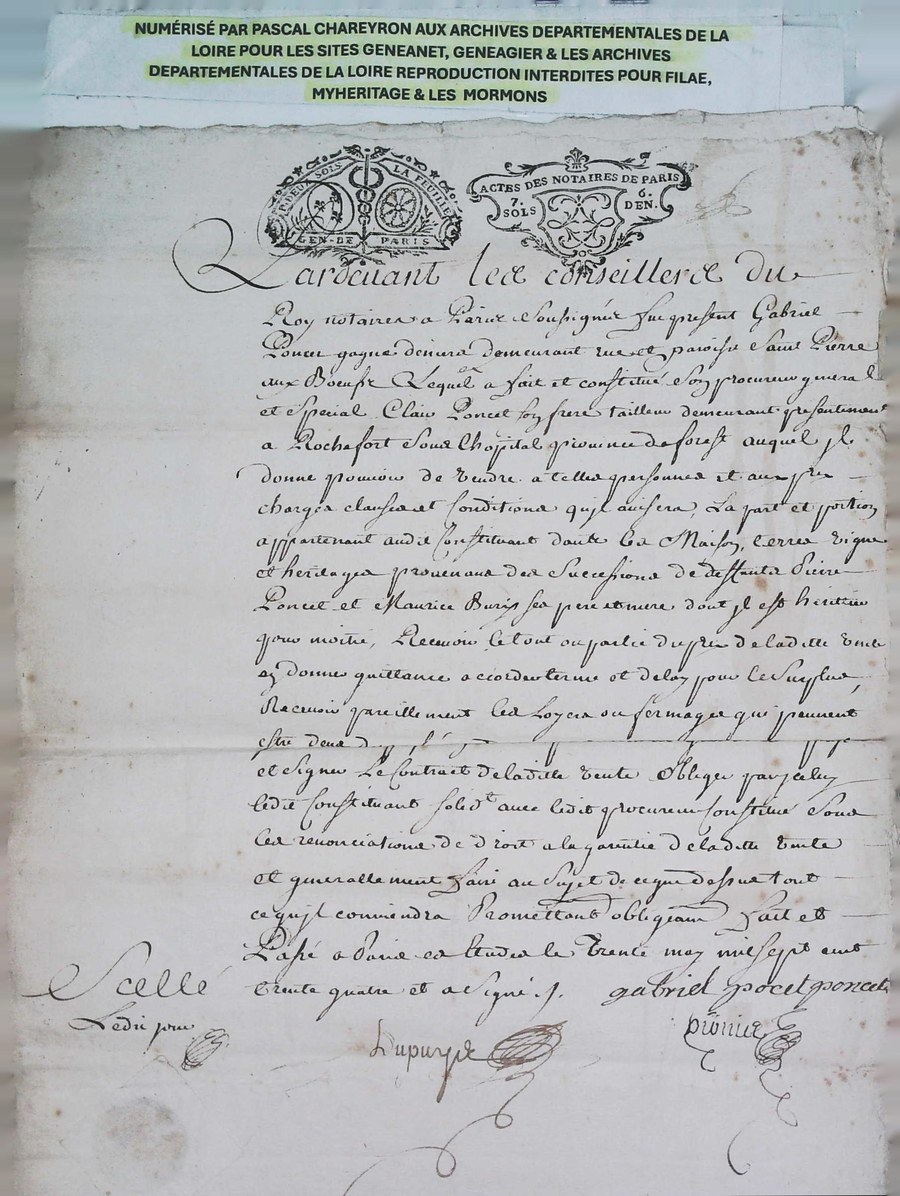 NUMÉRISÉ PAR PASCAL CHAREYRON AUX ARCHIVES DEPARTEMENTALES DE LA
LOIRE POUR LES SITES GENEANET, GENEAGIER & LES ARCHIVES
DEPARTEMENTALES DE LA LOIRE REPRODUCTION INTERDITES POUR FILAE,
MYHERITAGE & LES MORMONS
DEUX SOLS LA FEUILLE
GEN-DE PARIS
ACTES DES NOTAIRES DE PARIS
7. SOLS 6. DEN.
Pardevant les conseillers du
Roy notaires a Paris Soussignés fut present Gabriel
Poncet gagne deniers demeurant rue et paroisse Saint Pierre
aux Boeufs Lequel a fait et constitué Son procureur general
et Special Clair Poncet Son frere tailleur demeurant presentement
a Rochefort Sous lhopital province de forest auquel jl
donne pouvoir de vendre a telles personnes et aux prix
charges clauses et Conditions qujl avisera, La part et portion
appartenant audit Constituant dans les Maison, terres vigne
et heritages provenans des Successions de deffunts Pierre
Poncet et Maurice ses pere et mere dont jl est heritier
pour moitié, Recevoir le tout ou partie du prix de la ditte vente
en donner quittance accorder terme et delay pour le Surplus,
Recevoir pareillement les Loyers ou fermages qui peuvent
estre deus
et Signer Le Contract de laditte vente obliger par jceluy
ledit Constituant solidt avec ledit procureur Constitué Sous
les renonciations de droit a la garentie de laditte vente
et generallement faire au Sujet de ce que dessus tout
ce qujl conviendra Promettant obligeant fait et
Passé a Paris es Etudes le Trente may mil sept cent
trente quatre et a Signé ./. gabriel pocet poncet
Scellé
Ledit jour
Dupuys